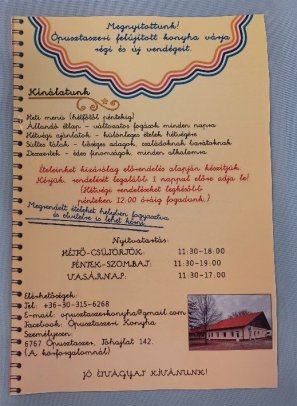 Megnyitottunk!
Ópusztaszeri felújított konyha várja
régi és új vendégeit.
Kínálatunk
Heti menü (hétfőtől péntekig)
Állandó étlap - változatos fogások minden napra
Hétvégi ajánlatok - különleges ételek hétvégére
Sültes tálak - bőséges adagok, családoknak, barátoknak
Desszertek - édes finomságok, minden alkalomra
Ételeinket kizárólag előrendelés alapján készítjük.
Kérjük, rendelését legalább 1 nappal előre adja le!
(Hétvégi rendeléseket legkésőbb
pénteken 12.00 óráig fogadunk.)
Megrendelt ételeket helyben fogyasztva
és elvitelre is lehet kérni.
Nyitvatartás:
HÉTFŐ-CSÜTÖRTÖK: 11:30-18:00
PÉNTEK-SZOMBAT: 11:30-19.00
VASÁRNAP: 11:30-17.00
Elérhetőségek:
Tel: +36-30-315-6268
E-mail: opusztaszerkonyha@gmail.com
Facebook: Ópusztaszeri Konyha
Személyesen:
6767 Ópusztaszer, Tóhajlat 142.
(A körforgalomnál)
JÓ ÉTVÁGYAT KÍVÁNUNK!